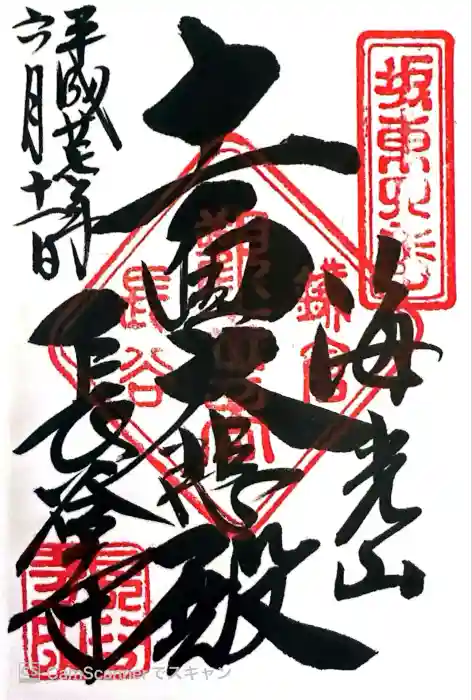 坂東
海光山
十一面大悲殿
鎌倉
長谷
長谷寺
平成
六月十一日
CamScanner でスキャン